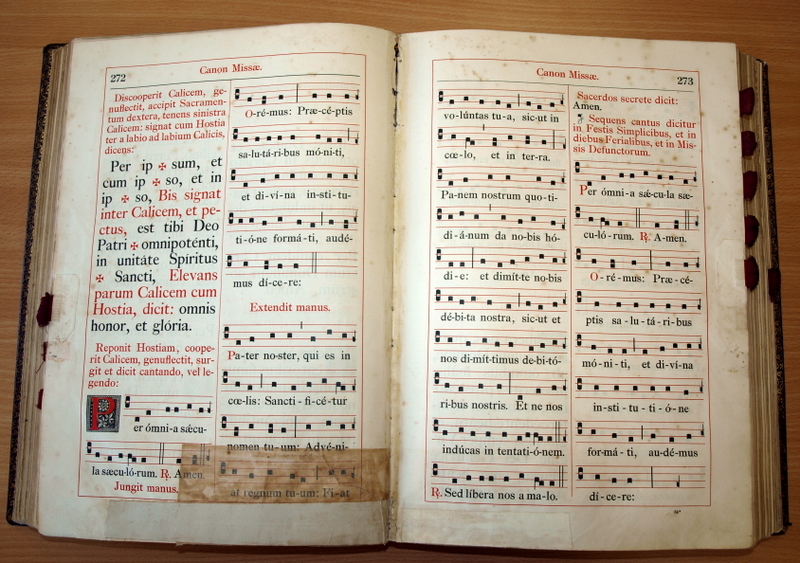 272
Canon Missæ.
Discooperit Calicem, ge-
nuflectit, accipit Sacramen-
tum dextera, tenens sinistra
Calicem: signat cum Hostia
ter a labio ad labium Calicis,
dicens:
Per ip ✠ sum, et
cum ip ✠ so, et in
ip ✠ so, Bis signat
inter Calicem, et pe-
ctus, est tibi Deo
Patri ✠ omnipoténti,
in unitáte Spíritus
✠ Sancti, Elevans
parum Calicem cum
Hostia, dicit: omnis
honor, et glória.
Reponit Hostiam, coope-
rit Calicem, genuflectit, sur-
git et dicit cantando, vel le-
gendo:
Per ómni-a sǽcu-
la sæcu-ló-rum. ℟. Amen.
Jungit manus.
O-ré-mus: Præ-cé-ptis
sa-lu-tá-ri-bus mó-ni-ti,
et di-ví-na in-sti-tu-
ti-ó-ne formá-ti, audé-
mus dí-ce-re:
Extendit manus.
Pa-ter no-ster, qui es in
cœ-lis: Sancti-fi-cé-tur
nomen tu-um: Advé-ni-
at regnum tu-um: Fi-at
Canon Missæ.
273
vo-lúntas tu-a, sic-ut in
cœ-lo, et in ter-ra.
Pa-nem nostrum quo-ti-
di-á-num da no-bis hó-
di-e: et dimít-te no-bis
dé-bi-ta nostra, sic-ut et
nos di-mít-timus de-bi-tó-
ri-bus nostris. Et ne nos
indúcas in tentati-ó-nem.
℟. Sed líbera nos a ma-lo.
Sacerdos secrete dicit:
Amen.
¶ Sequens cantus dicitur
in Festis Simplicibus, et in
diebus Ferialibus, et in Mis-
sis Defunctorum.
Per ómni-a sǽ-cu-la sæ-
cu-ló-rum. ℟. A-men.
O-ré-mus: Præ-cé-
ptis sa-lu-tá-ri-bus
mó-ni-ti, et di-ví-na
in-sti-tu-ti-ó-ne
for-má-ti, au-dé-mus
dí-ce-re: